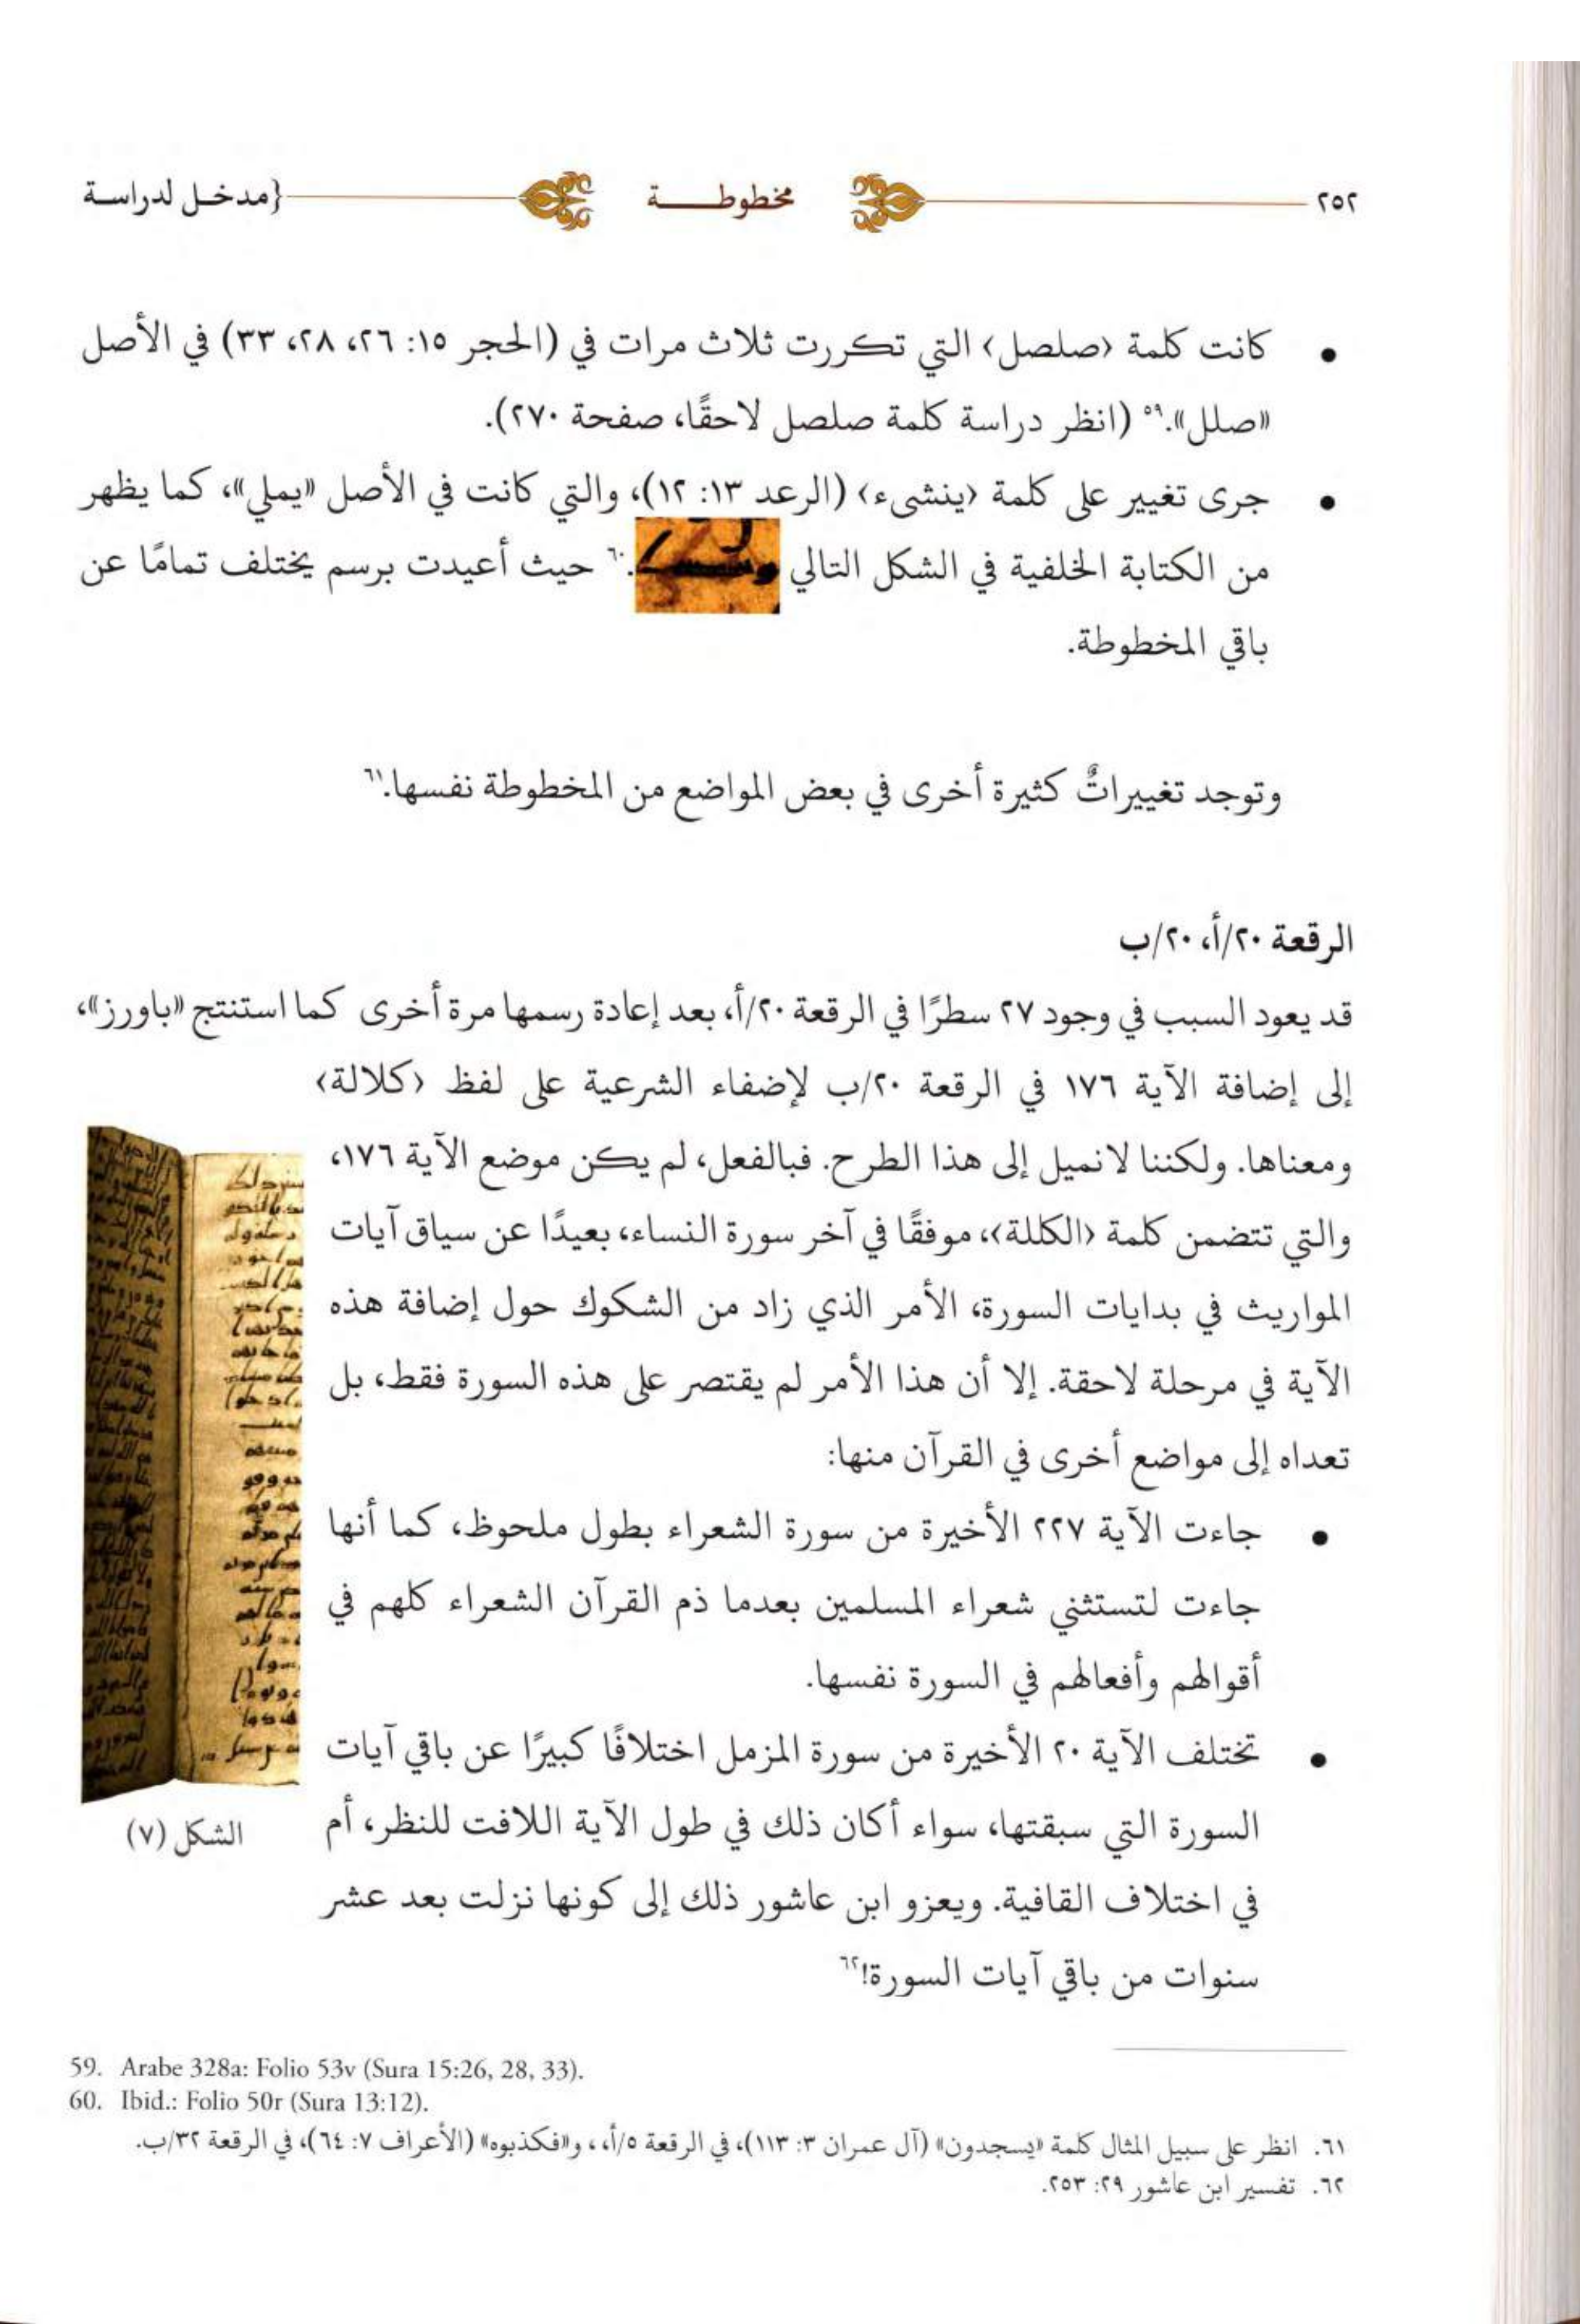 ٢٥٢ مخطوطـــــة {مدخـل لدراسـة
• كانت كلمة ‹صلصل› التي تكررت ثلاث مرات في (الحجر ١٥: ٢٦، ٢٨، ٣٣) في الأصل
«صلل».٥٩ (انظر دراسة كلمة صلصل لاحقًا، صفحة ٢٧٠).
• جرى تغيير على كلمة ‹ينشىء› (الرعد ١٣: ١٢)، والتي كانت في الأصل «يملي»، كما يظهر
من الكتابة الخلفية في الشكل التالي .٦٠ حيث أعيدت برسم يختلف تمامًا عن
باقي المخطوطة.
وتوجد تغييراتٌ كثيرة أخرى في بعض المواضع من المخطوطة نفسها.٦١
الرقعة ٢٠/أ، ٢٠/ب
قد يعود السبب في وجود ٢٧ سطرًا في الرقعة ٢٠/أ، بعد إعادة رسمها مرة أخرى كما استنتج «باورز»،
إلى إضافة الآية ١٧٦ في الرقعة ٢٠/ب لإضفاء الشرعية على لفظ ‹كلالة›
ومعناها. ولكننا لا نميل إلى هذا الطرح. فبالفعل، لم يكن موضع الآية ١٧٦،
والتي تتضمن كلمة ‹الكللة›، موفقًا في آخر سورة النساء، بعيدًا عن سياق آيات
المواريث في بدايات السورة، الأمر الذي زاد من الشكوك حول إضافة هذه
الآية في مرحلة لاحقة. إلا أن هذا الأمر لم يقتصر على هذه السورة فقط، بل
تعداه إلى مواضع أخرى في القرآن منها:
• جاءت الآية ٢٢٧ الأخيرة من سورة الشعراء بطول ملحوظ، كما أنها
جاءت لتستثني شعراء المسلمين بعدما ذم القرآن الشعراء كلهم في
أقوالهم وأفعالهم في السورة نفسها.
• تختلف الآية ٢٠ الأخيرة من سورة المزمل اختلافًا كبيرًا عن باقي آيات
السورة التي سبقتها، سواء أكان ذلك في طول الآية اللافت للنظر، أم
في اختلاف القافية. ويعزو ابن عاشور ذلك إلى كونها نزلت بعد عشر
سنوات من باقي آيات السورة!٦٢
الشكل (٧)
59. Arabe 328a: Folio 53v (Sura 15:26, 28, 33).
60. Ibid.: Folio 50r (Sura 13:12).
٦١. انظر على سبيل المثال كلمة «يسجدون» (آل عمران ٣: ١١٣)، في الرقعة ٥/أ،، و«فكذبوه» (الأعراف ٧: ٦٤)، في الرقعة ٣٢/ب.
٦٢. تفسير ابن عاشور ٢٩: ٢٥٣.